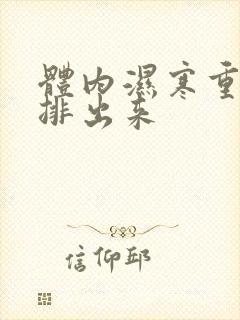 體內濕寒重
排出来
信仰邱